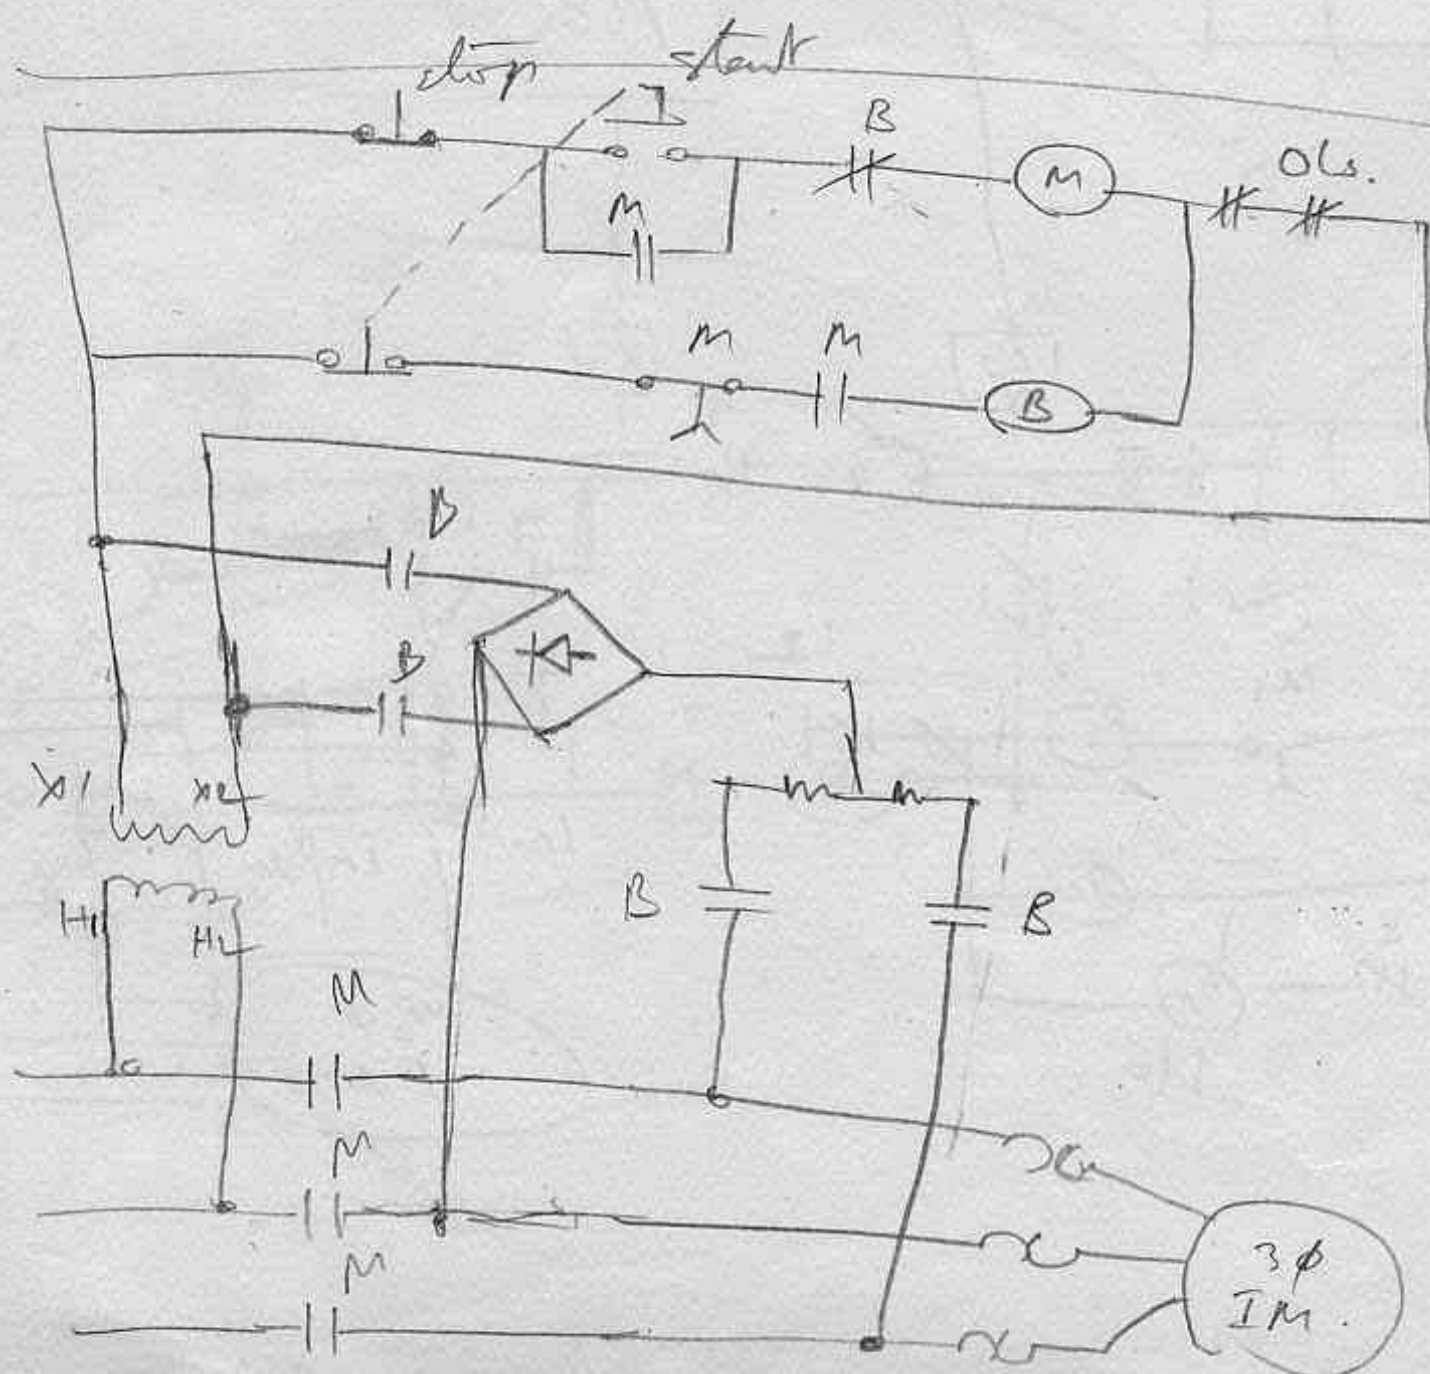 stop start
B
M
OLs.
M
M M
B
B
B
X1 X2
B B
H1
H2
M
M
M
3φ
IM.